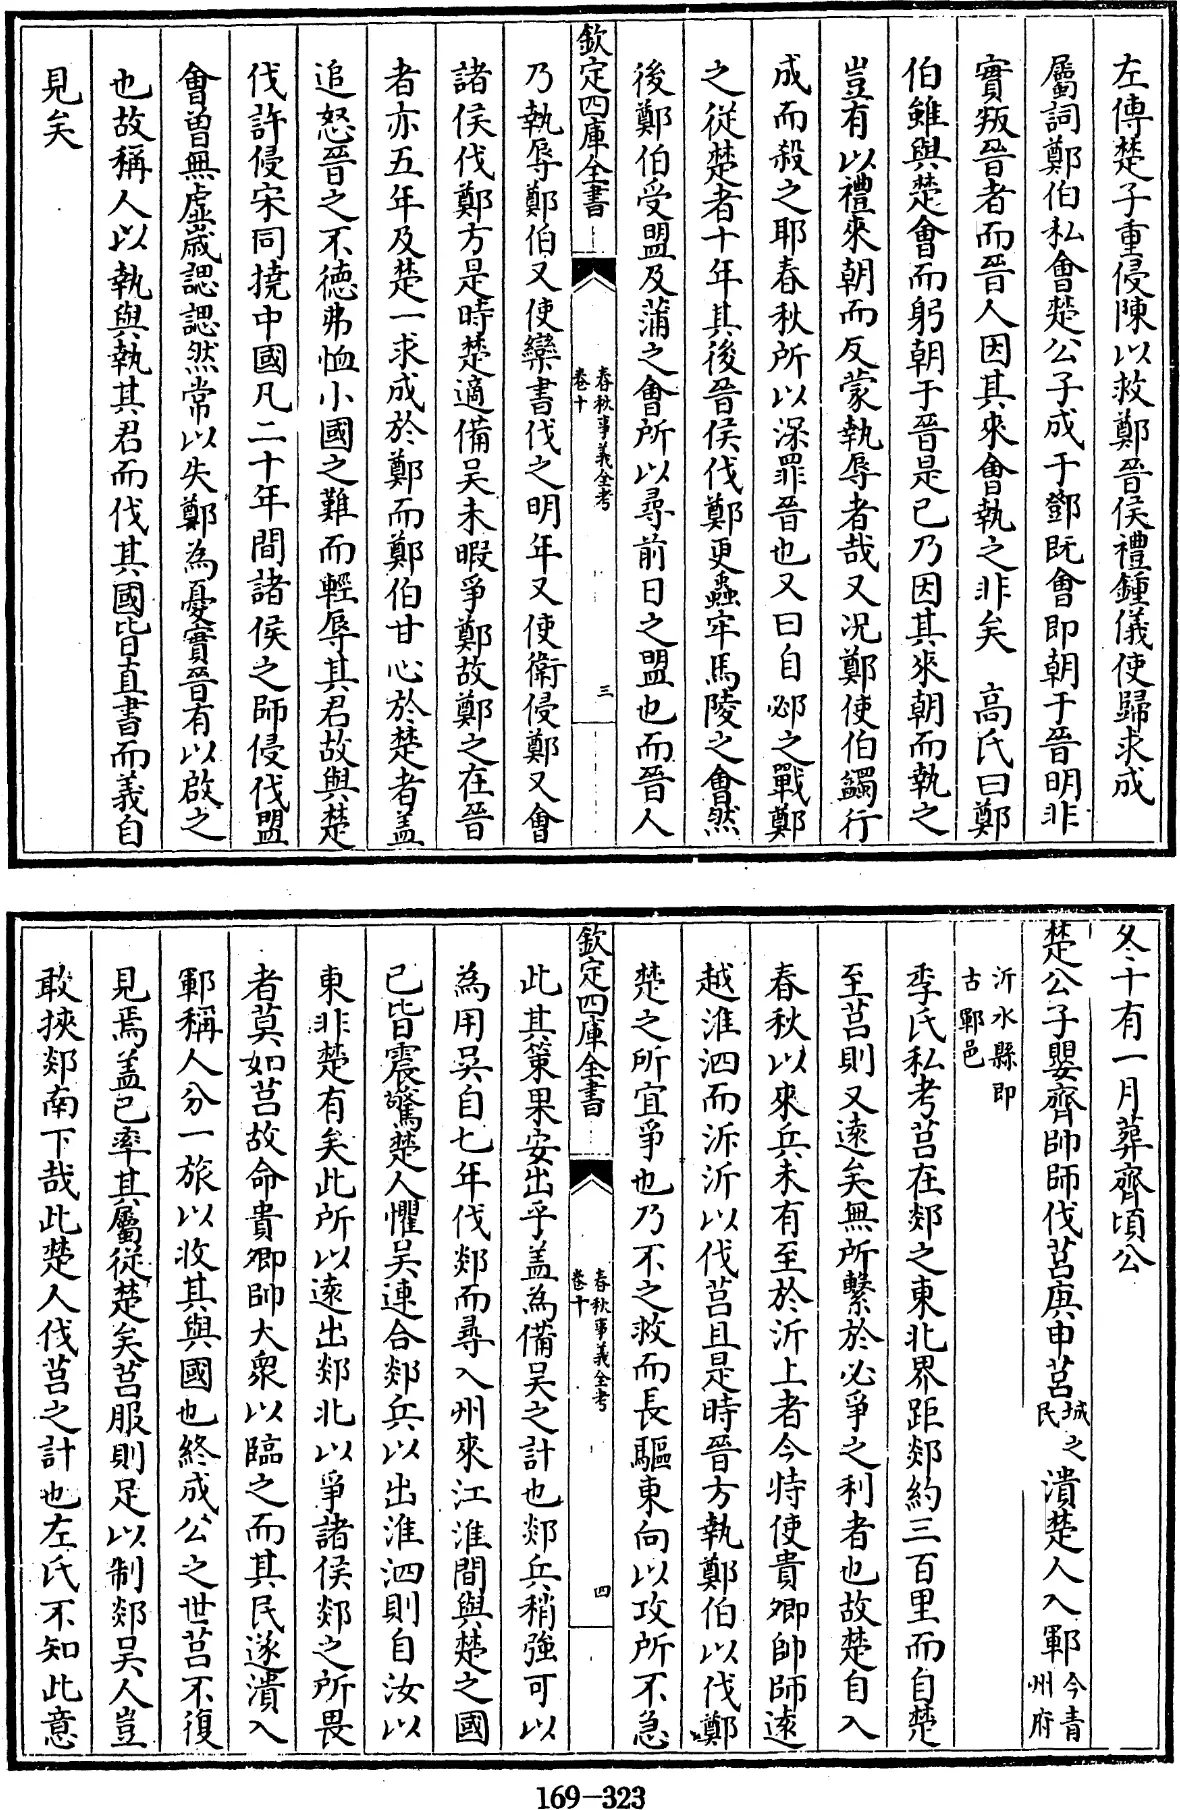 左傳楚子重侵陳以救鄭晉侯禮鍾儀使歸求成
屬詞鄭伯私會楚公子成于鄧既會即朝于晉明非
實叛晉者而晉人因其來會執之非矣　高氏曰鄭
伯雖與楚會而躬朝于晉是已乃因其來朝而執之
豈有以禮來朝而反蒙執辱者哉又况鄭使伯蠲行
成而殺之耶春秋所以深罪晉也又曰自邲之戰鄭
之從楚者十年其後晉侯伐鄭更蟲牢馬陵之會然
後鄭伯受盟及蒲之會所以尋前日之盟也而晉人
欽定四庫全書
春秋事義全考
卷十
三
乃執辱鄭伯又使欒書伐之明年又使衛侵鄭又會
諸侯伐鄭方是時楚適備吳未暇爭鄭故鄭之在晉
者亦五年及楚一求成於鄭而鄭伯甘心於楚者盖
追怒晉之不德弗恤小國之難而輕辱其君故與楚
伐許侵宋同撓中國凡二十年間諸侯之師侵伐盟
會曽無虛歲諰諰然常以失鄭為憂實晉有以啟之
也故稱人以執與執其君而伐其國皆直書而義自
見矣
冬十有一月葬齊頃公
楚公子嬰齊帥師伐莒庚申莒城之民潰楚人入鄆今青州府
沂水縣即
古鄆邑
季氏私考莒在郯之東北界距郯約三百里而自楚
至莒則又遠矣無所繫於必爭之利者也故楚自入
春秋以來兵未有至於沂上者今特使貴卿帥師遠
越淮泗而泝沂以伐莒且是時晉方執鄭伯以伐鄭
楚之所宜爭也乃不之救而長驅東向以攻所不急
欽定四庫全書
春秋事義全考
卷十
四
此其策果安出乎盖為備吳之計也郯兵稍強可以
為用吳自七年伐郯而尋入州來江淮間與楚之國
已皆震驚楚人懼吳連合郯兵以出淮泗則自汝以
東非楚有矣此所以遠出郯北以爭諸侯郯之所畏
者莫如莒故命貴卿帥大衆以臨之而其民遂潰入
鄆稱人分一旅以收其與國也終成公之世莒不復
見焉盖已率其屬從楚矣莒服則足以制郯吳人豈
敢挾郯南下哉此楚人伐莒之計也左氏不知此意
169-323